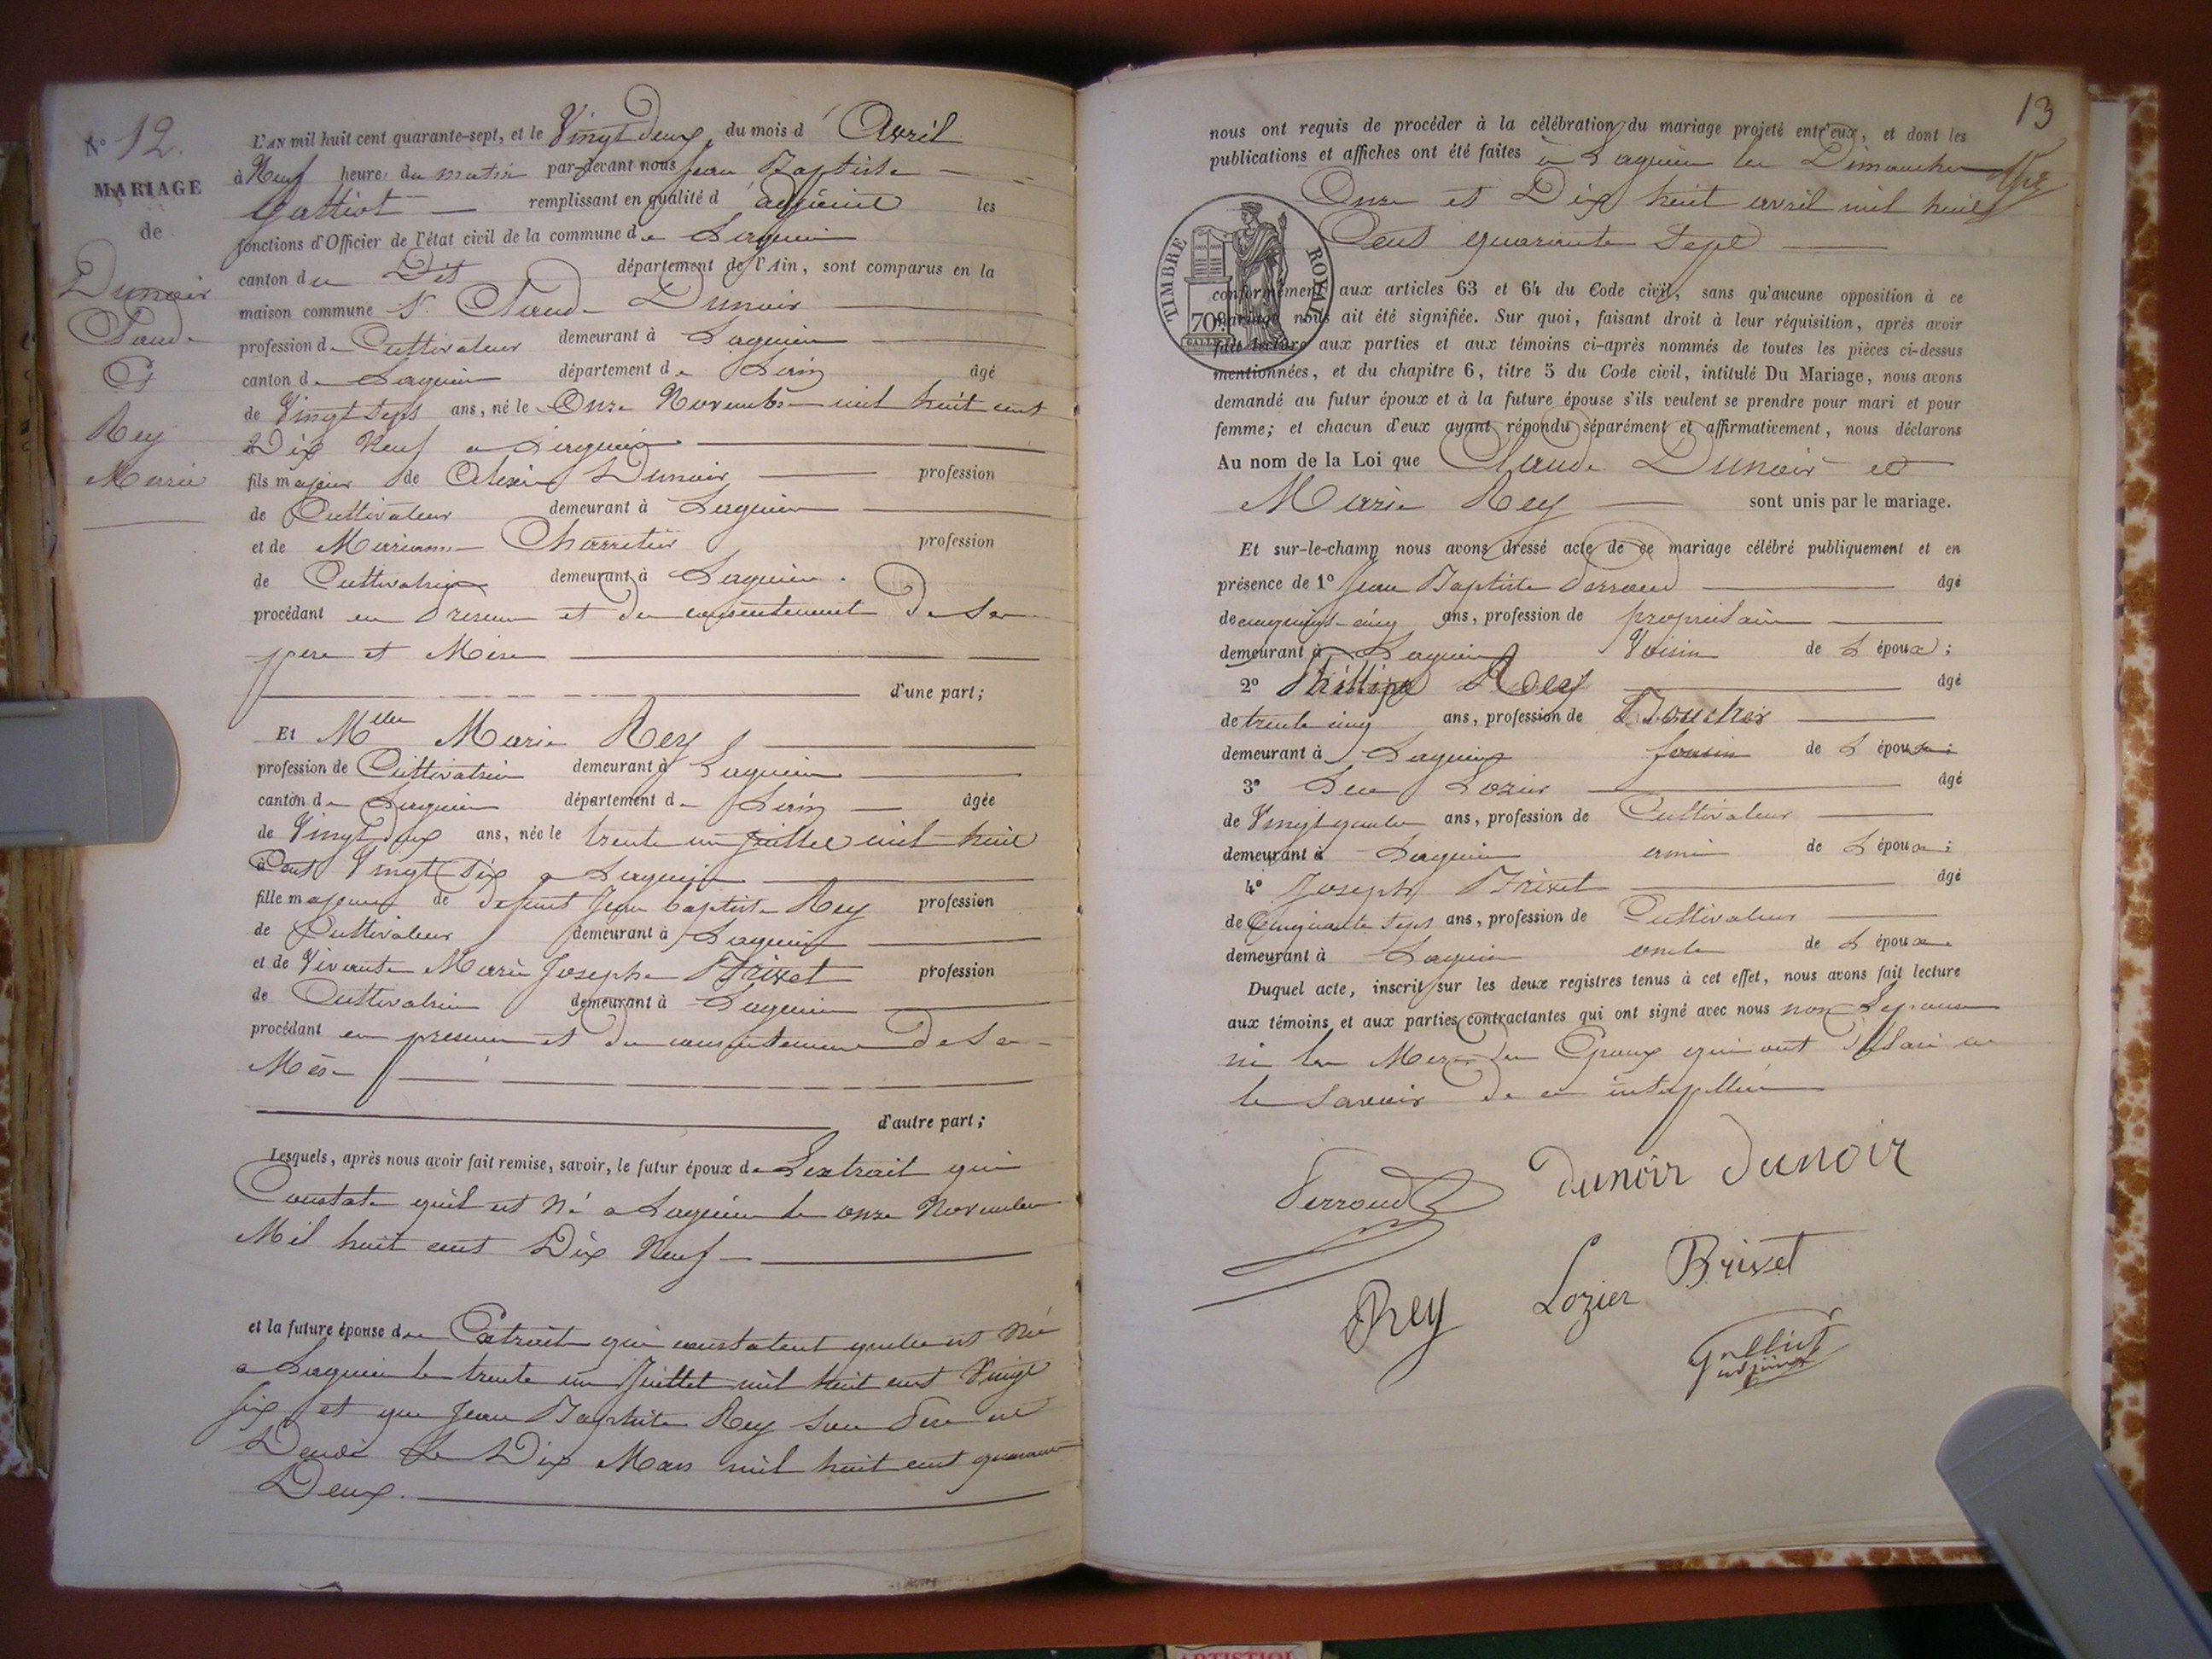 N° 12.
MARIAGE
de
Dunoir
Claude
Et
Rey
Marie
L'AN mil huit cent quarante-sept, et le Vingt deux, du mois d' Avril
à Neuf heure du matin par-devant nous Jean Baptiste
Galliot remplissant en qualité d' adjoint les
fonctions d'Officier de l'état civil de la commune de Lagnieu
canton du Dit département de l'Ain, sont comparus en la
maison commune Sr. Claude Dunoir
profession de Cultivateur demeurant à Lagnieu
canton de Lagnieu département de Lain âgé
de Vingt Sept ans, né le Onze Novembre mil huit cent
Dix Neuf a Lagnieu
fils majeur de Alexis Dunoir profession
de Cultivateur demeurant à Lagnieu
et de Marianne Charretier profession
de Cultivatrice demeurant à Lagnieu.
procédant en presence et du consentement De Ses
pere et Mere
d'une part;
Et Melle Marie Rey
profession de Cultivatrice demeurant à Lagnieu
canton de Lagnieu département de Lain âgée
de Vingt ans, née le trente un juillet mil huit
à Cent Vingt Six a Lagnieu
fille majeure de defunt Jean baptiste Rey profession
de Cultivateur demeurant à Lagnieu
et de Vivante Marie Josephe Brivet profession
de Cultivatrice demeurant à Lagnieu
procédant en presence et du consentement De Sa
Mère
d'autre part;
Lesquels, après nous avoir fait remise, savoir, le futur époux de Lextrait qui
Constate qu'il est Né a Lagnieu le onze Novembre
Mil huit cent Dix Neuf
et la future épouse de Extrait qui constatent quelle est Née
a Lagnieu le trente un Juillet mil huit cent Vingt
six et que Jean Baptiste Rey Son Pere est
Décédé Le Dix Mars mil huit cent quarante
Deux.
13
nous ont requis de procéder à la célébration du mariage projeté entr'eux, et dont les
publications et affiches ont été faites à Lagnieu les Dimanches
Onze et Dix huit avril mil huit
Cent quarante Sept
TIMBRE ROYAL
70c
conformément aux articles 63 et 64 du Code civil, sans qu'aucune opposition à ce
mariage nous ait été signifiée. Sur quoi, faisant droit à leur réquisition, après avoir
fait lecture aux parties et aux témoins ci-après nommés de toutes les pièces ci-dessus
mentionnées, et du chapitre 6, titre 5 du Code civil, intitulé Du Mariage, nous avons
demandé au futur époux et à la future épouse s'ils veulent se prendre pour mari et pour
femme; et chacun d'eux ayant répondu séparément et affirmativement, nous déclarons
Au nom de la Loi que Claude Dunoir et
Marie Rey sont unis par le mariage.
Et sur-le-champ nous avons dressé acte de ce mariage célébré publiquement et en
présence de 1° Jean Baptiste Perroud âgé
de cinquante-cinq ans, profession de propriétaire
demeurant à Lagnieu Voisin de L époux;
2° Phillipe Rey âgé
de trente cinq ans, profession de Boucher
demeurant à Lagnieu Cousin de L épouse;
3° Luc Lozier âgé
de Vingt quatre ans, profession de Cultivateur
demeurant à Lagnieu ami de L époux;
4° Joseph Brivet âgé
de Cinquante Sept ans, profession de Cultivateur
demeurant à Lagnieu oncle de L époux
Duquel acte, inscrit sur les deux registres tenus à cet effet, nous avons fait lecture
aux témoins et aux parties contractantes qui ont signé avec nous non Lepouse
ni les Meres des Epoux qui ont déclaré ne
le Savoir de ce interpellées
Perroud dunoir dunoir
Rey Lozier Brivet
Galliot
adjoint